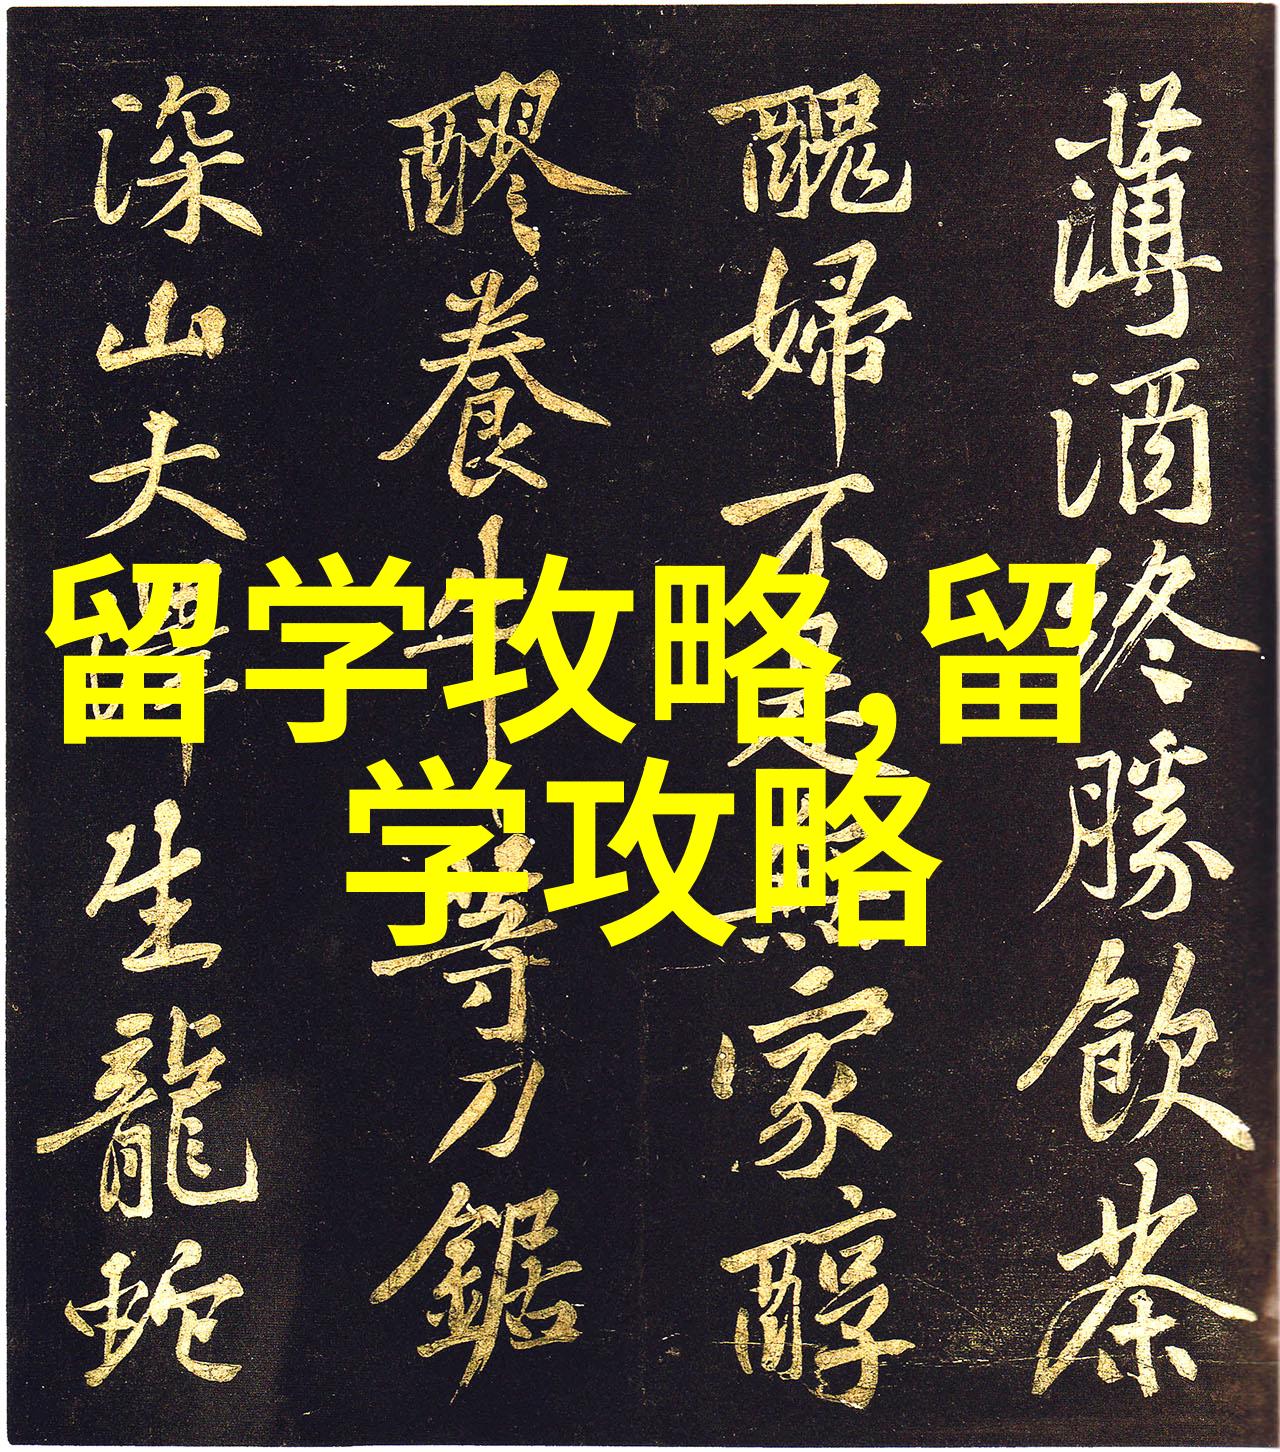 薄酒終勝飲茶
醜婦不是無家醇
醪養牛等刀鋸
深山大澤生龍蛇
留学攻略,留
学攻略